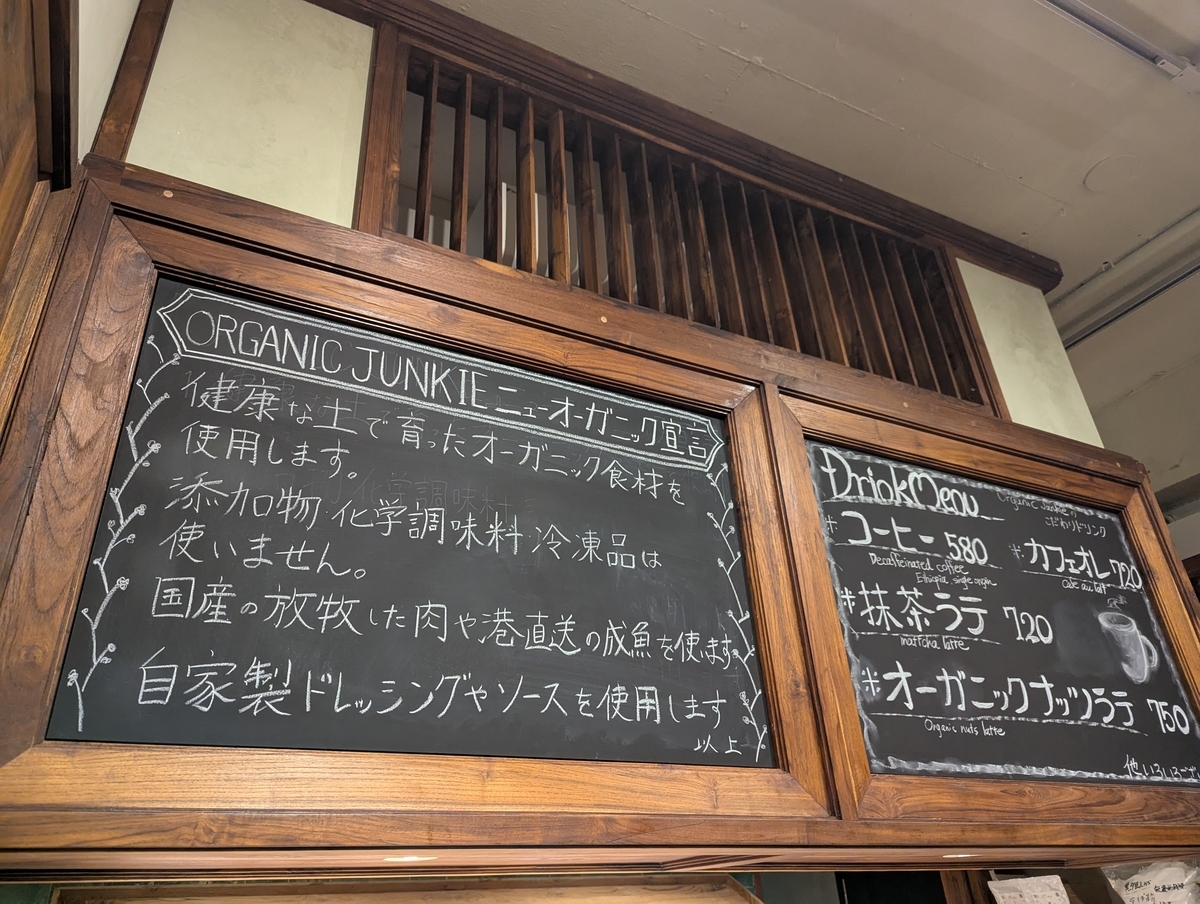 ORGANIC JUNKIE ニューオーガニック宣言
健康な土で育ったオーガニック食材を
使用します。
添加物・化学調味料・冷凍品は
使いません。
国産の放牧した肉や港直送の成魚を使います
自家製ドレッシングやソースを使用します
以上
Drink Menu
Organic Junkieの
こだわりドリンク
*コーヒー 580
Decaffeinated coffee
Ethiopia single origin
*カフェオレ 720
Cafe au lait
*抹茶ラテ 720
matcha latte
*オーガニックナッツラテ 750
Organic nuts latte
他いろいろござ